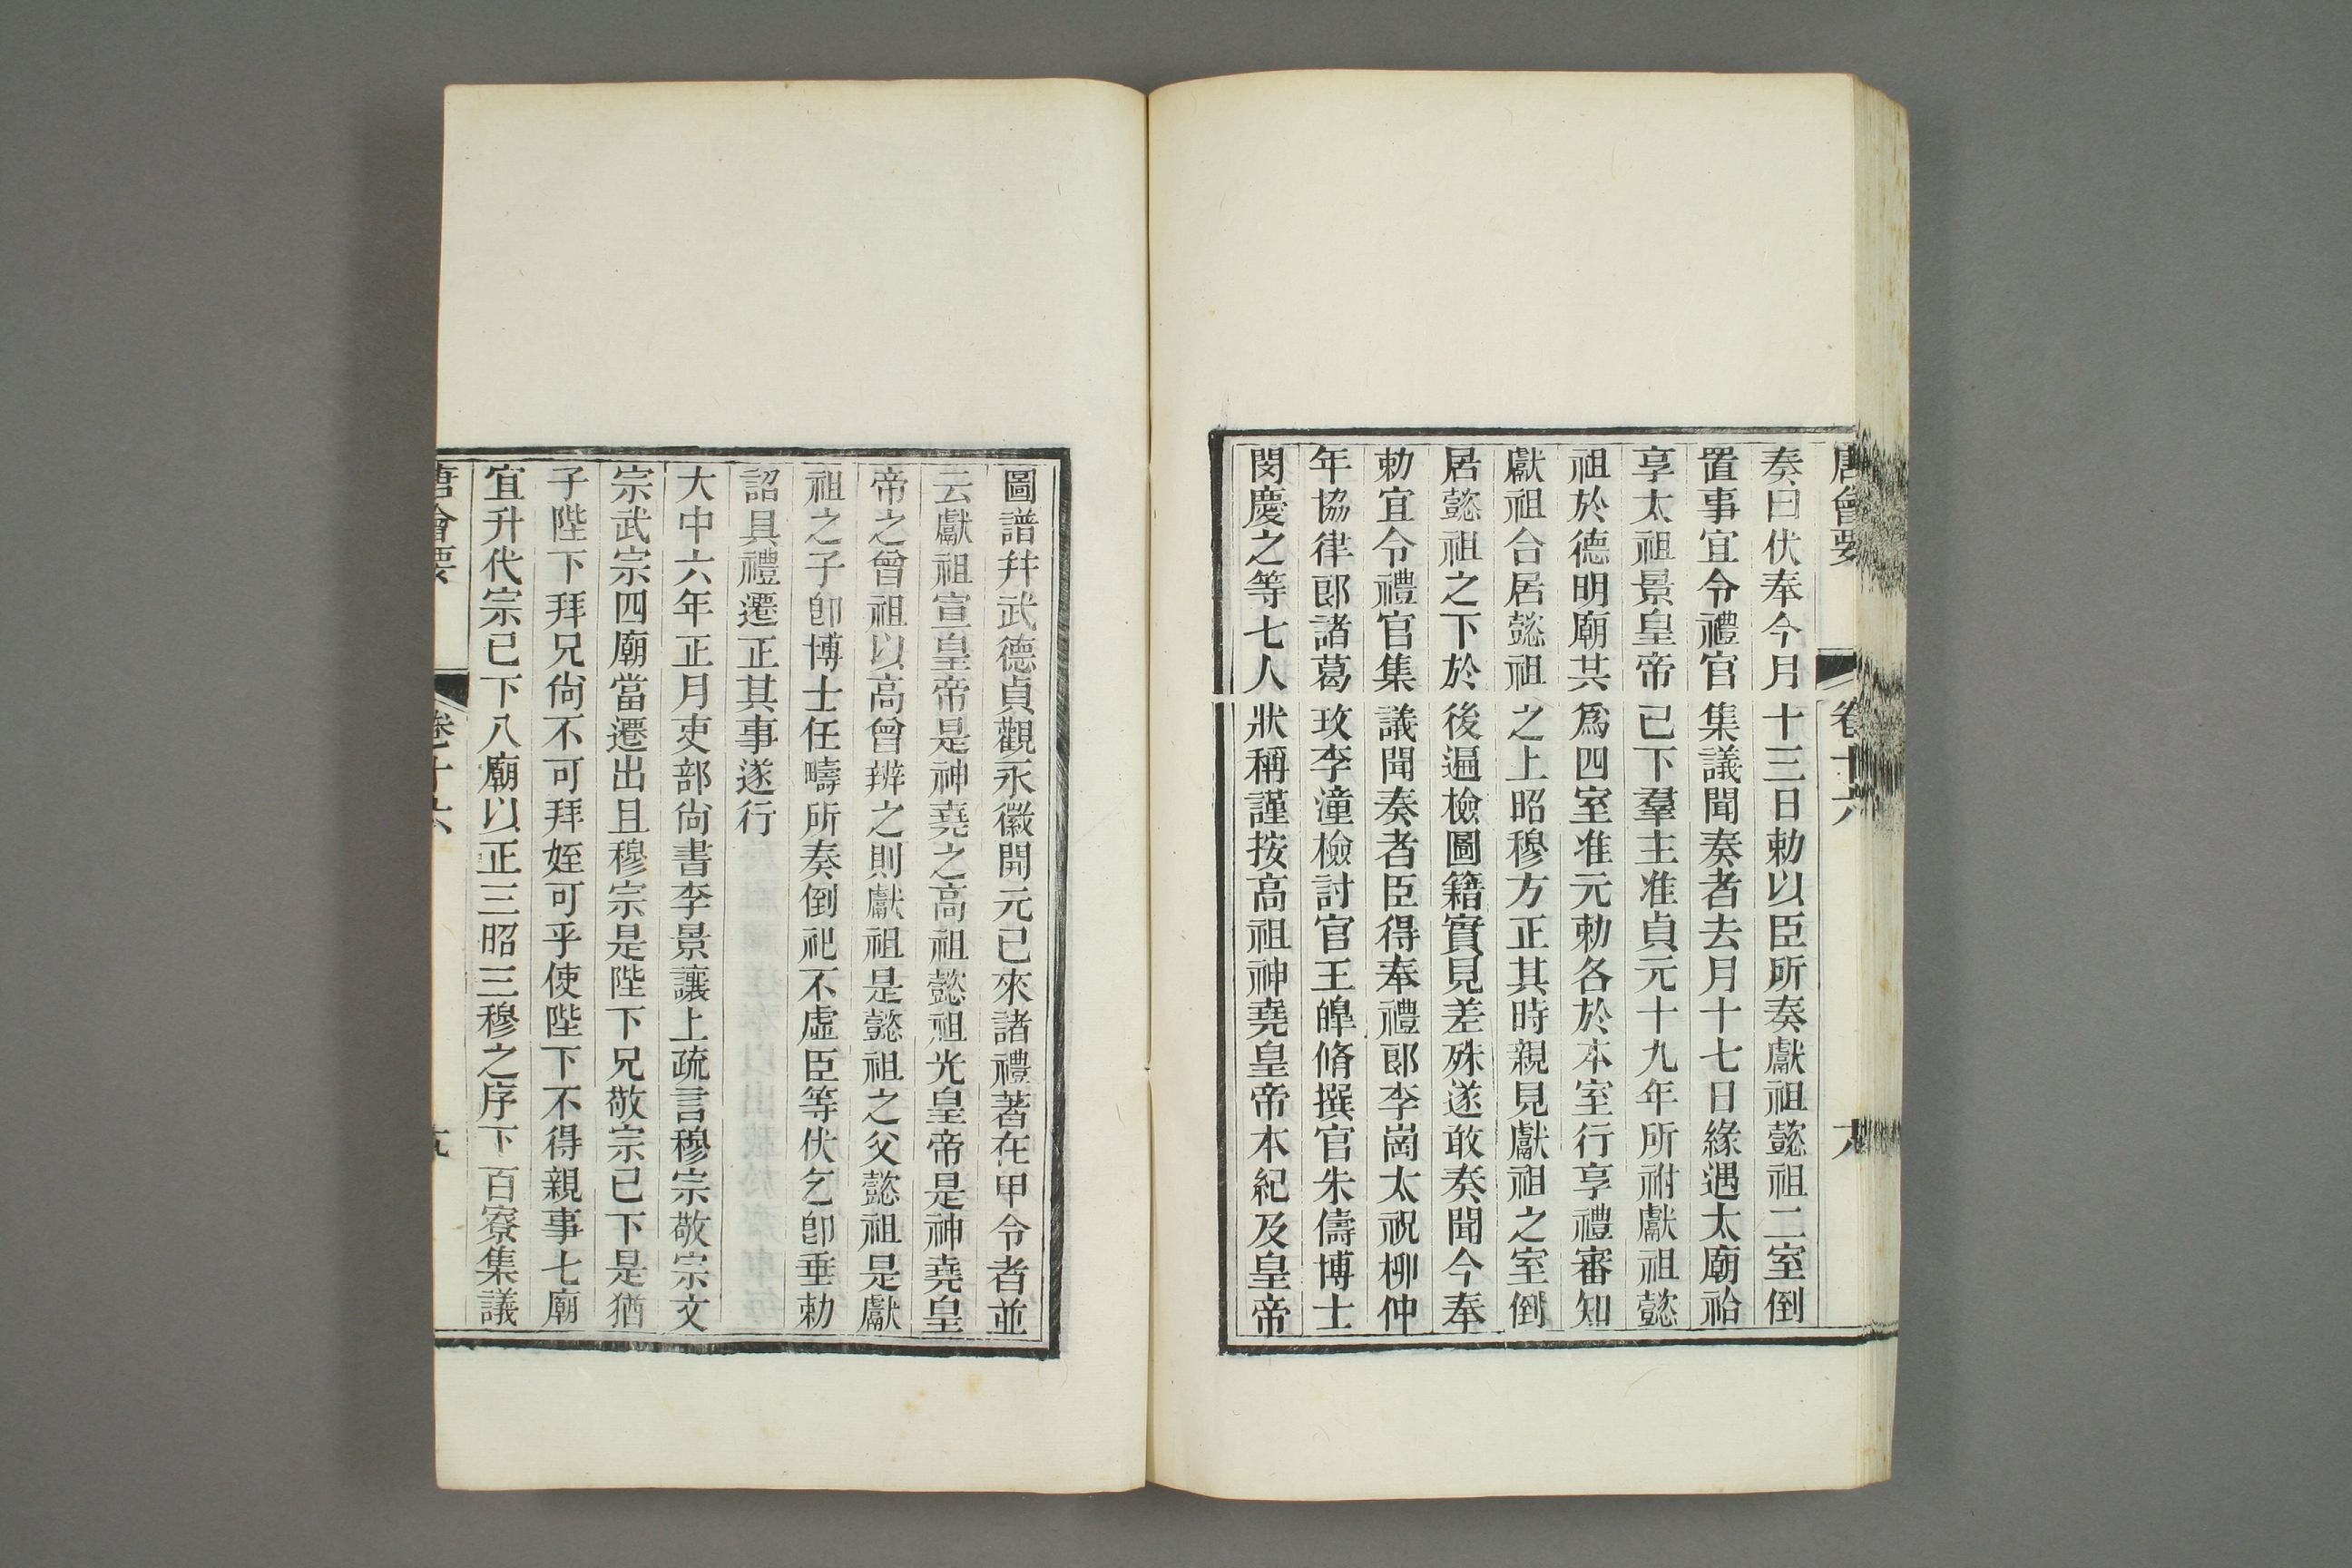 唐會要 卷十六
奏曰伏奉今月十三日勅以臣所奏獻祖懿祖二室倒
置事宜令禮官集議聞奏者去月十七日緣遇太廟祫
享太祖景皇帝已下羣主准貞元十九年所祔獻祖懿
祖於德明廟共爲四室准元勅各於本室行享禮審知
獻祖合居懿祖之上昭穆方正其時親見獻祖之室倒
居懿祖之下於後遍檢圖籍實見差殊遂敢奏聞今奉
勅宜令禮官集議聞奏者臣得奉禮郎李崗太祝柳仲
年協律郎諸葛玫李潼檢討官王皞脩撰官朱儔博士
閔慶之等七人狀稱謹按高祖神堯皇帝本紀及皇帝
圖譜幷武德貞觀永徽開元已來諸禮著在甲令者並
云獻祖宣皇帝是神堯之高祖懿祖光皇帝是神堯皇
帝之曾祖以高曾辨之則獻祖是懿祖之父懿祖是獻
祖之子卽博士任疇所奏倒祀不虛臣等伏乞卽垂勅
詔具禮遷正其事遂行
大中六年正月吏部尙書李景讓上疏言穆宗敬宗文
宗武宗四廟當遷出且穆宗是陛下兄敬宗已下是猶
子陛下拜兄尙不可拜姪可乎使陛下不得親事七廟
宜升代宗已下八廟以正三昭三穆之序下百寮集議
唐會要 卷十六